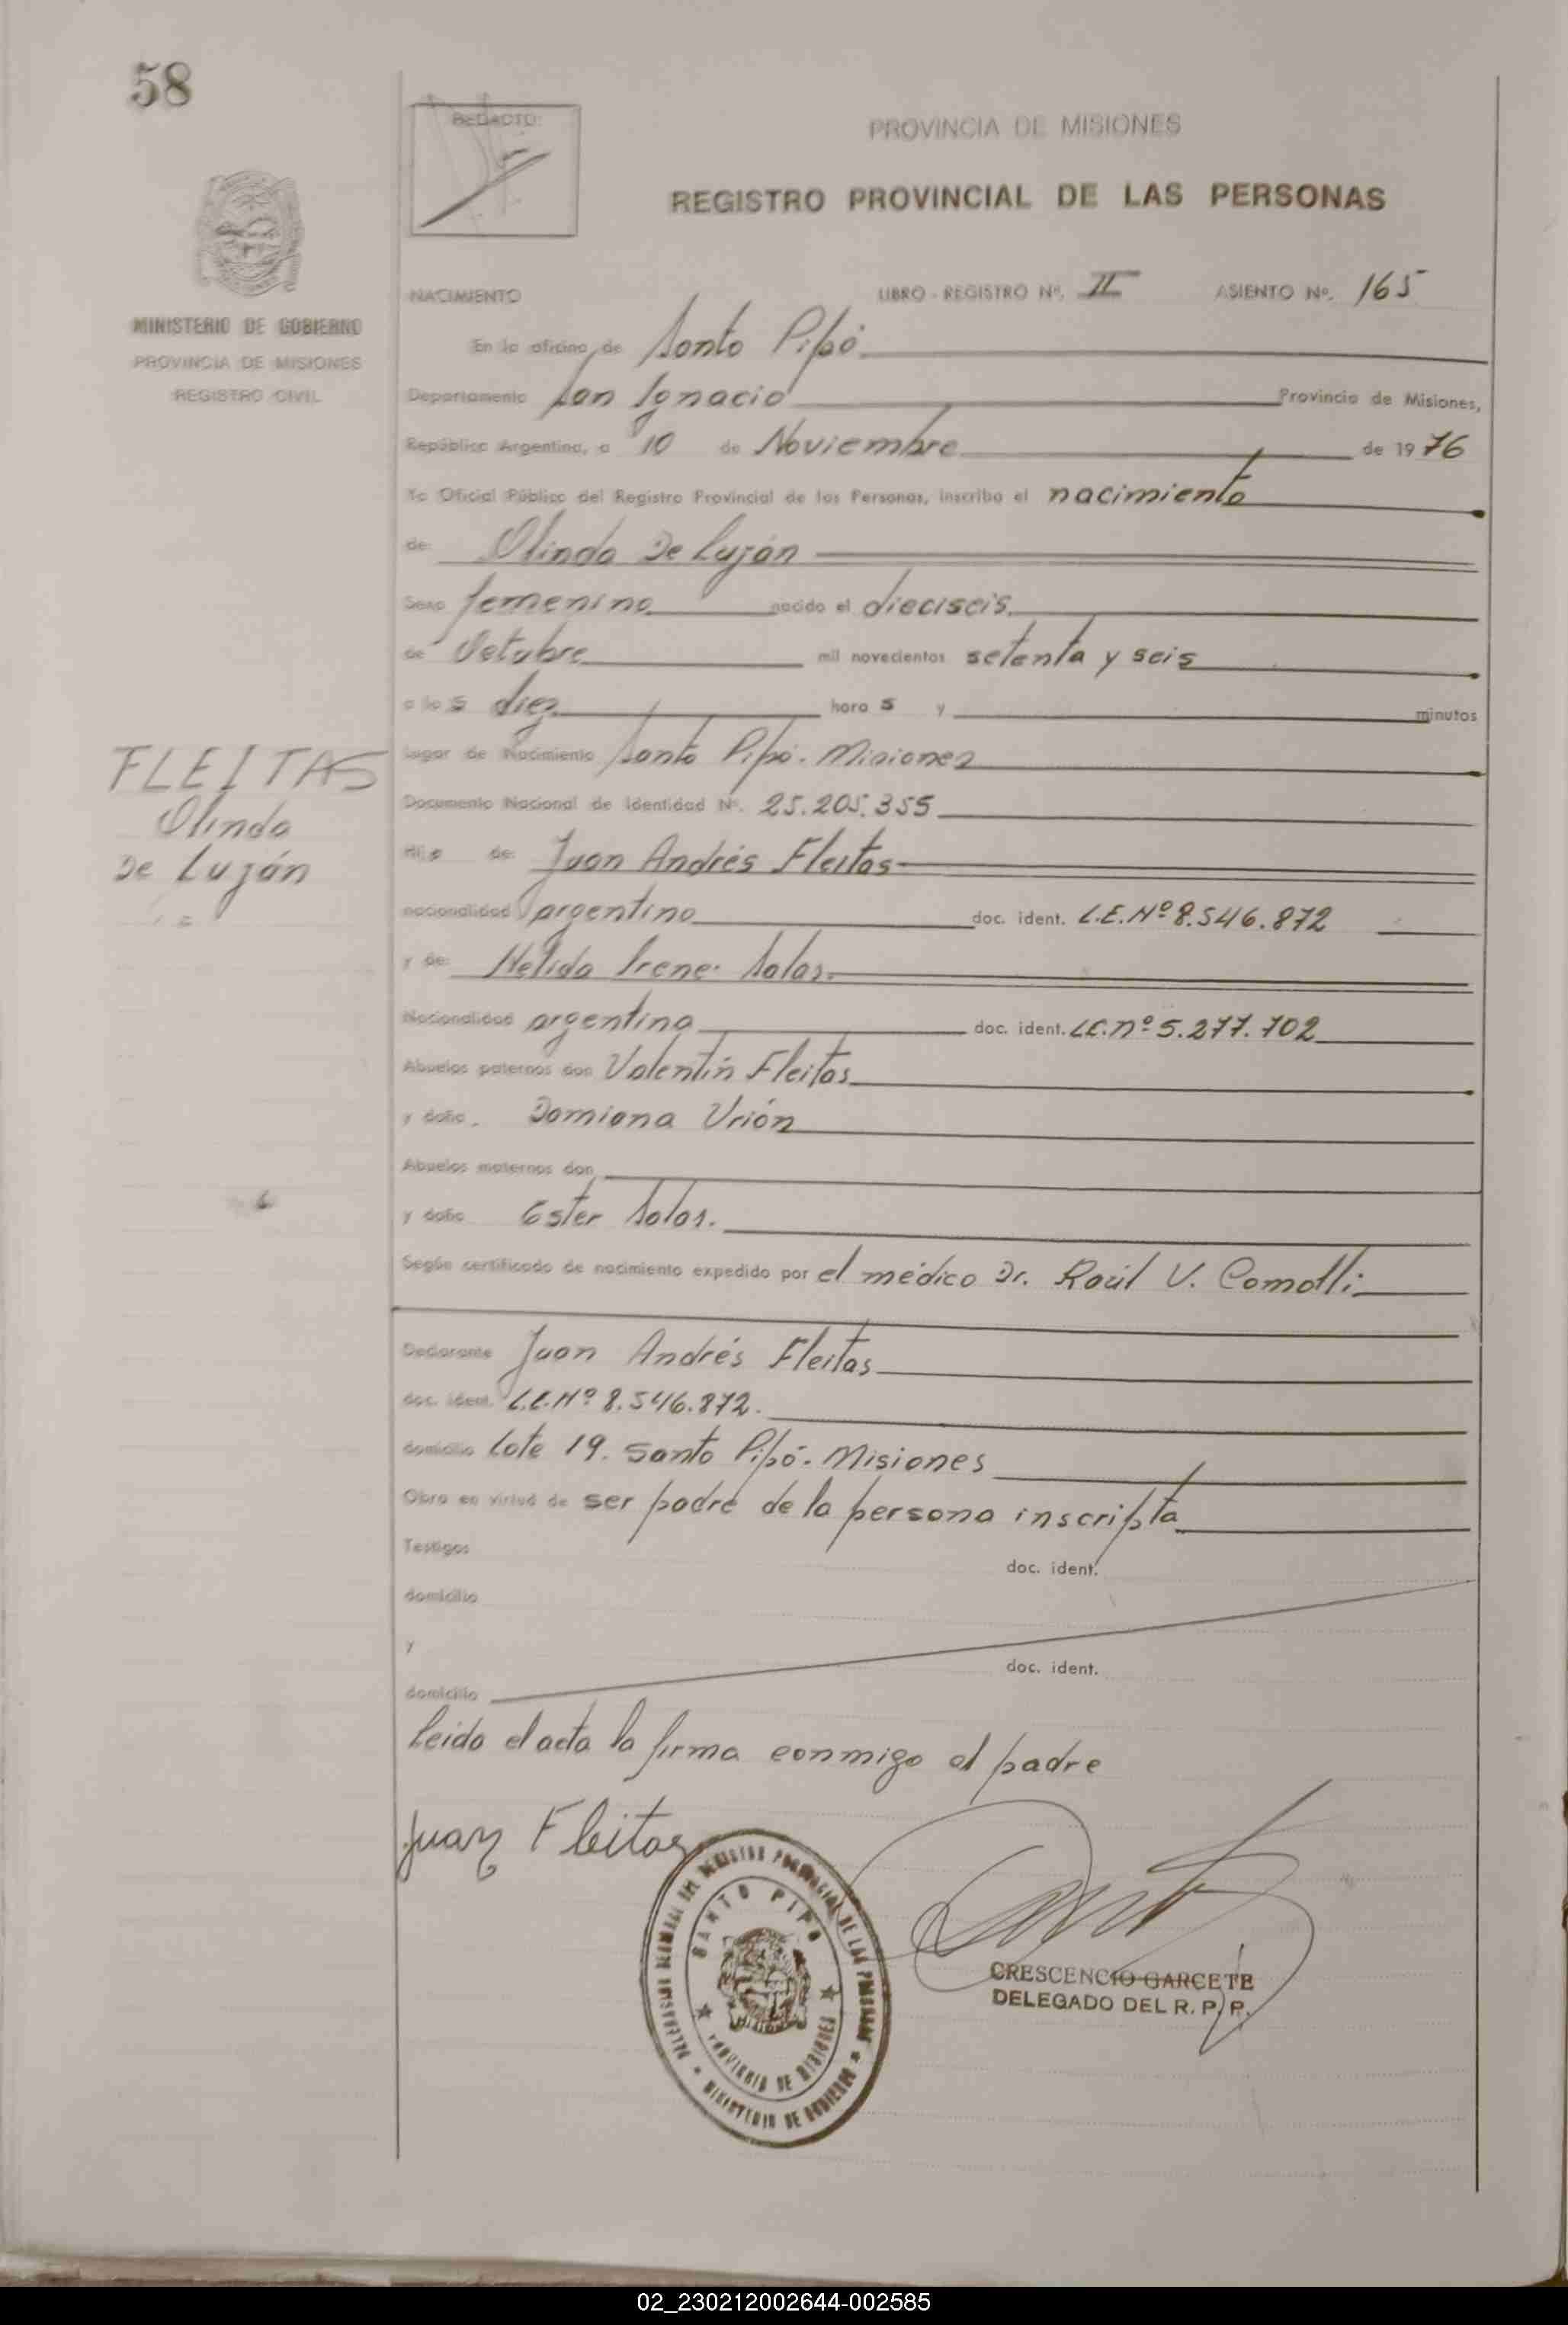 58
REDACTO:
PROVINCIA DE MISIONES
REGISTRO PROVINCIAL DE LAS PERSONAS
MINISTERIO DE GOBIERNO
PROVINCIA DE MISIONES
REGISTRO CIVIL
NACIMIENTO LIBRO - REGISTRO Nº. II ASIENTO Nº. 165
En la oficina de Santo Pipó
Departamento San Ignacio Provincia de Misiones,
República Argentina, a 10 de Noviembre de 1976
Yo Oficial Público del Registro Provincial de las Personas, inscribo el nacimiento
de Olinda De Luján
Sexo femenino nacido el dieciseis
de Octubre mil novecientos setenta y seis
a las diez horas y minutos
Lugar de Nacimiento Santo Pipó. Misiones
FLEITAS
Olinda
De Luján
Documento Nacional de Identidad Nº. 25.205.355
Hija de: Juan Andrés Fleitas
nacionalidad argentino doc. ident. L.E.Nº 8.546.872
y de: Nelida Irene Salas.
Nacionalidad argentina doc. ident. LC.nº 5.277.702
Abuelos paternos don Valentín Fleitas
y doña. Damiana Urión
Abuelos maternos don
y doña Ester Salas.
Según certificado de nacimiento expedido por el médico Dr. Raúl V. Comolli
Declarante Juan Andrés Fleitas
doc. ident. L.E.Nº 8.546.872.
domicilio Lote 19. Santo Pipó. Misiones
Obra en virtud de ser padre de la persona inscripta
Testigos doc. ident.
domicilio
y doc. ident.
domicilio
Leida el acta la firma conmigo el padre
Juan Fleitas
DEL REGISTRO PROVINCIAL DE LAS PERSONAS
SANTO PIPO
PROVINCIA DE MISIONES
MINISTERIO DE GOBIERNO
CRESCENCIO GARCETE
DELEGADO DEL R. P. P.
02_230212002644-002585